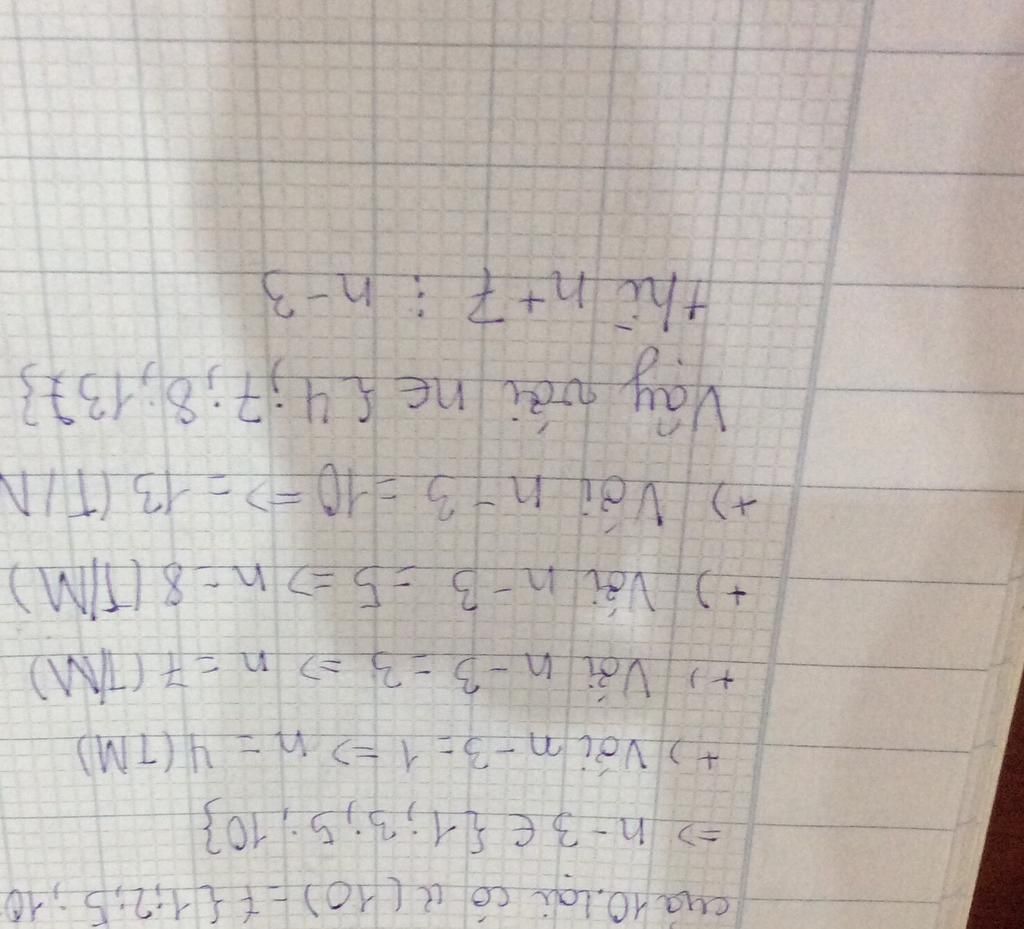 của 10. Lại có Ư(10) = { 1; 2; 5; 10
=> n - 3 ∈ { 1; 3; 5; 10}
+) Với n - 3 = 1 => n = 4 (TM)
+) Với n - 3 = 3 => n = 7 (T/M)
+) Với n - 3 = 5 => n = 8 (T/M)
+) Với n - 3 = 10 => = 13 (T/M
Vậy với n ∈ { 4; 7; 8; 13}
thì n + 7 ⋮ n - 3